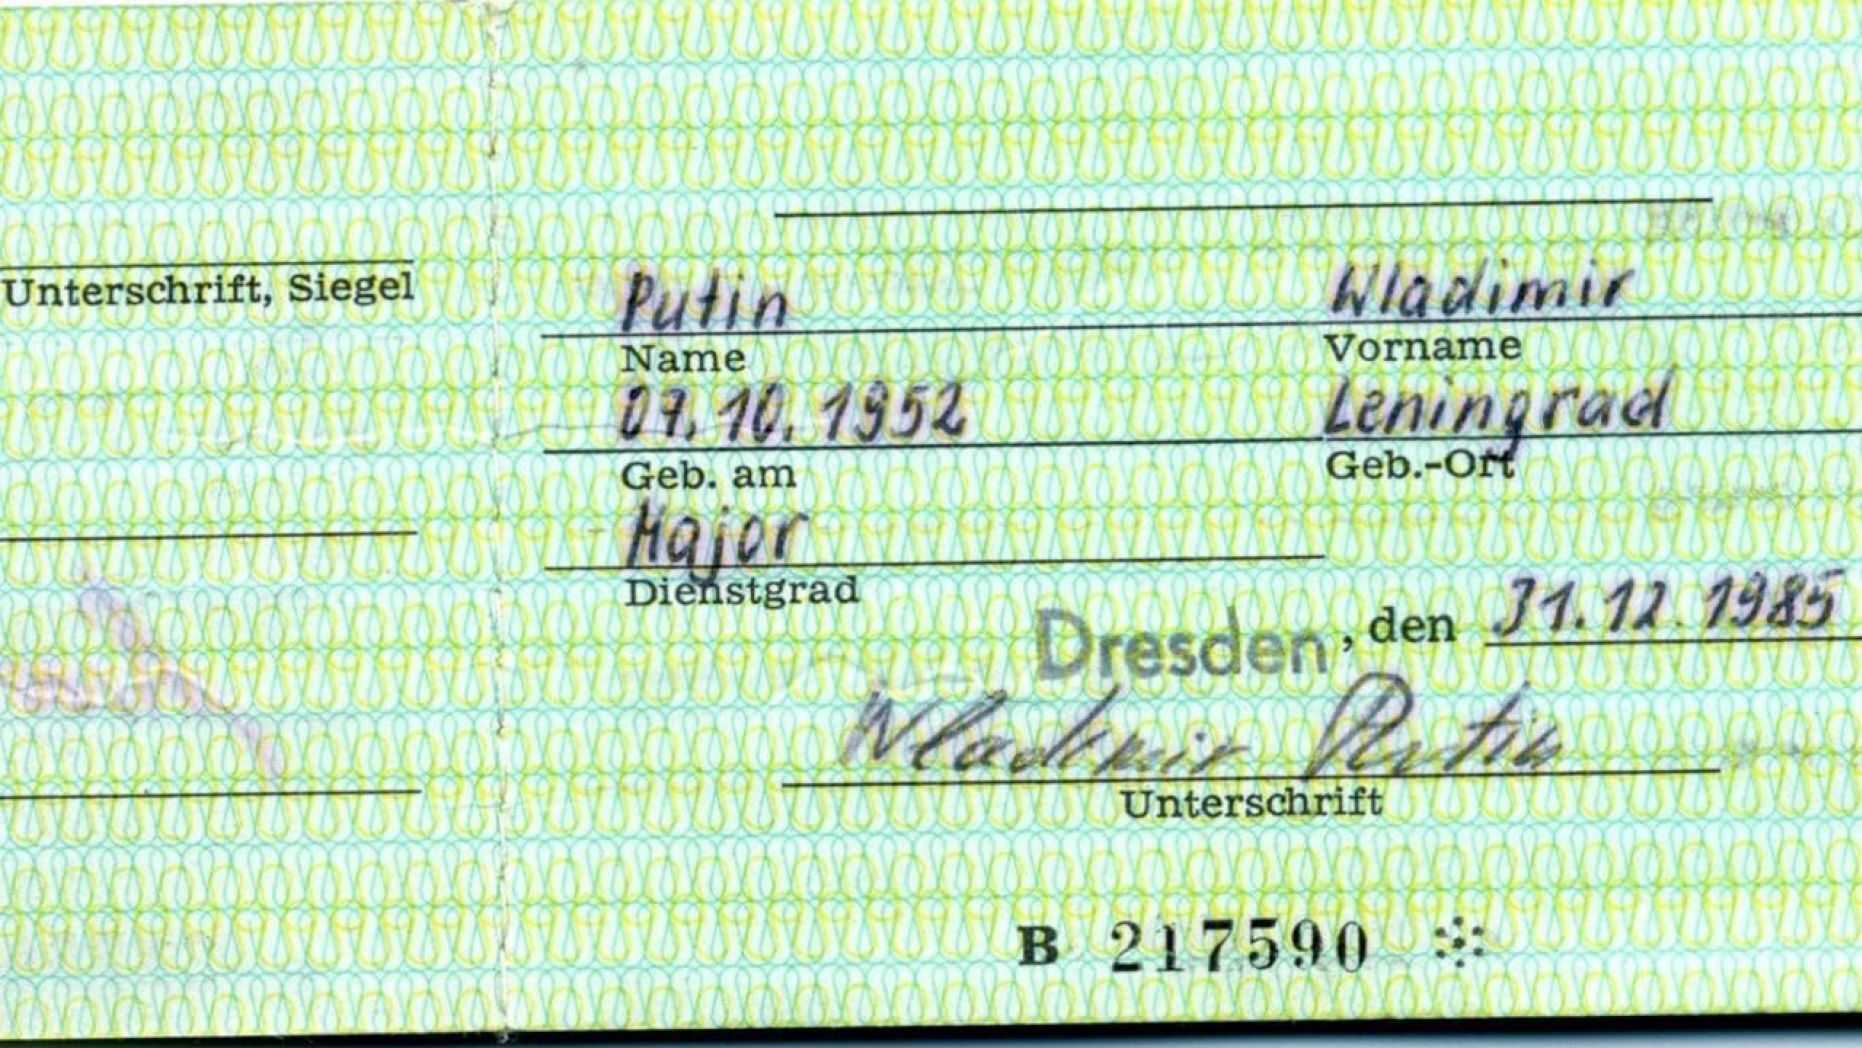 Unterschrift, Siegel
Putin Wladimir
Name Vorname
07.10.1952 Leningrad
Geb. am Geb.-Ort
Major
Dienstgrad
Dresden, den 31.12.1985
Wladimir Putin
Unterschrift
B 217590